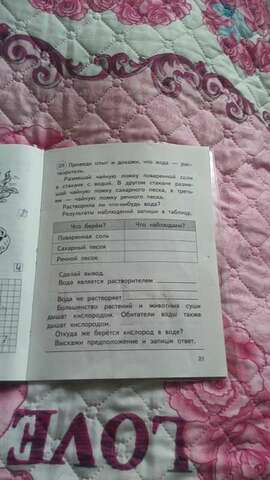 29 Проведи опыт и докажи, что вода — рас-
творитель.
Размешай чайную ложку поваренной соли
в стакане с водой. В другом стакане разме-
шай чайную ложку сахарного песка, в треть-
ем — чайную ложку речного песка.
Растворила ли что-нибудь вода?
Результаты наблюдений запиши в таблицу.
Что берём? Что наблюдаем?
Поваренная соль
Сахарный песок
Речной песок
Сделай вывод.
Вода является растворителем
Вода не растворяет
Большинство растений и животных суши
дышат кислородом. Обитатели воды также
дышат кислородом.
Откуда же берётся кислород в воде?
Выскажи предположение и запиши ответ.
21
LOVE